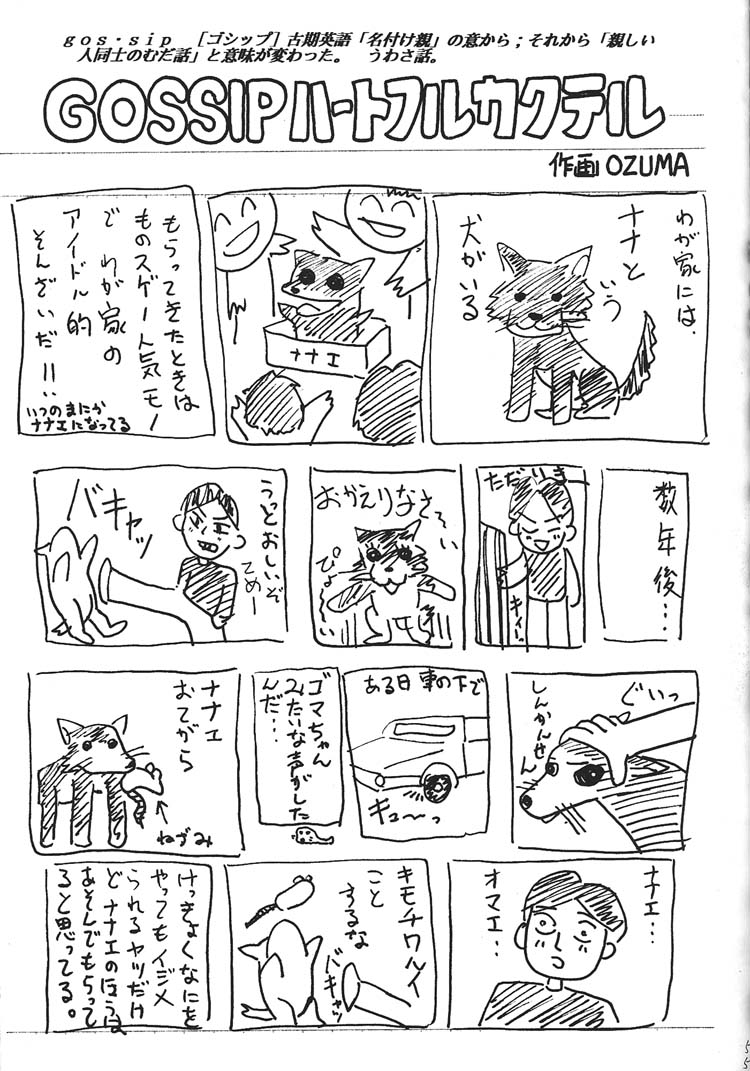 gos・sip　[ゴシップ] 古期英語「名付け親」の意から；それから「親しい
人同士のむだ話」と意味が変わった。　うわさ話。
GOSSIPハートフルカクテル
作画 OZUMA
わが家には、
ナナと
いう
犬がいる
ナナエ
もらってきたときは
ものスゲー人気モー
で わが家の
アイドル的
そんざいだ!!
いつのまにか
ナナエになってる
数年後…
ただいまー
キィー
おかえりなさーい
ぴょーい
うっとおしいぞ
てめー
バキャッ
ぐいっ
しんかんせん
ある日 車の下で
キュ〜っ
ゴマちゃん
みたいな声がした
んだ…
ナナエ
おてがら
ねずみ
ナナエ…
オマエ…
キモチワルイ
こと
するな
バキャッ
けっきょくなにを
やってもイジメ
られるヤツだけ
どナナエのほうは
あそんでもらって
ると思ってる。
5
5